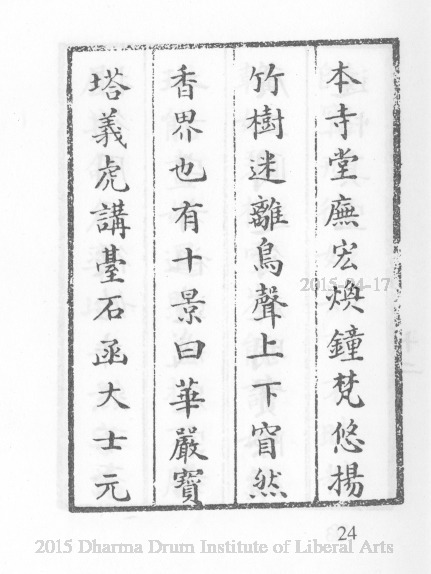 本寺堂廡宏煥鐘梵悠揚
竹樹迷離鳥聲上下窅然
香界也有十景曰華嚴寶
塔義虎講臺石函大士元
2015-04-17
24
2015 Dharma Drum Institute of Liberal Arts